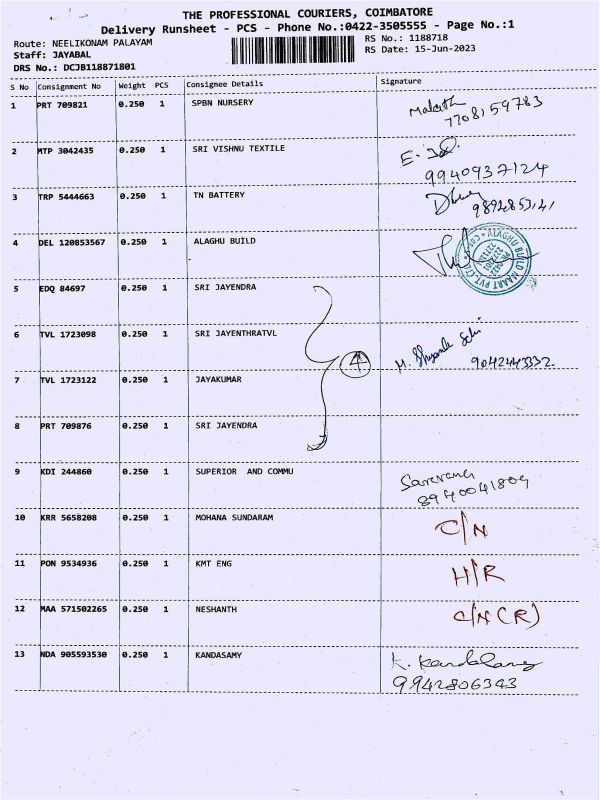 THE PROFESSIONAL COURIERS, COIMBATORE
Delivery Runsheet - PCS - Phone No.:0422-3505555 - Page No.:1
Route: NEELIKONAM PALAYAM
RS No.: 1188718
Staff: JAYABAL
RS Date: 15-Jun-2023
DRS No.: DCJB118871801
S No Consignment No Weight PCS Consignee Details Signature
1 PRT 709821 0.250 1 SPBN NURSERY
7708159783
2 MTP 3042435 0.250 1 SRI VISHNU TEXTILE
9940937124
3 TRP 5444663 0.250 1 TN BATTERY
9894853141
4 DEL 120853567 0.250 1 ALAGHU BUILD
ALAGHU BUILD MAART PVT LTD
5 EDQ 84697 0.250 1 SRI JAYENDRA
6 TVL 1723098 0.250 1 SRI JAYENTHRATVL
4
9042443332
7 TVL 1723122 0.250 1 JAYAKUMAR
8 PRT 709876 0.250 1 SRI JAYENDRA
9 KDI 244860 0.250 1 SUPERIOR AND COMMU
Saravana
8940041809
10 KRR 5658208 0.250 1 MOHANA SUNDARAM C/N
11 PON 9534936 0.250 1 KMT ENG H/R
12 MAA 571502265 0.250 1 NESHANTH C/N (R)
13 NDA 905593530 0.250 1 KANDASAMY
9942806343